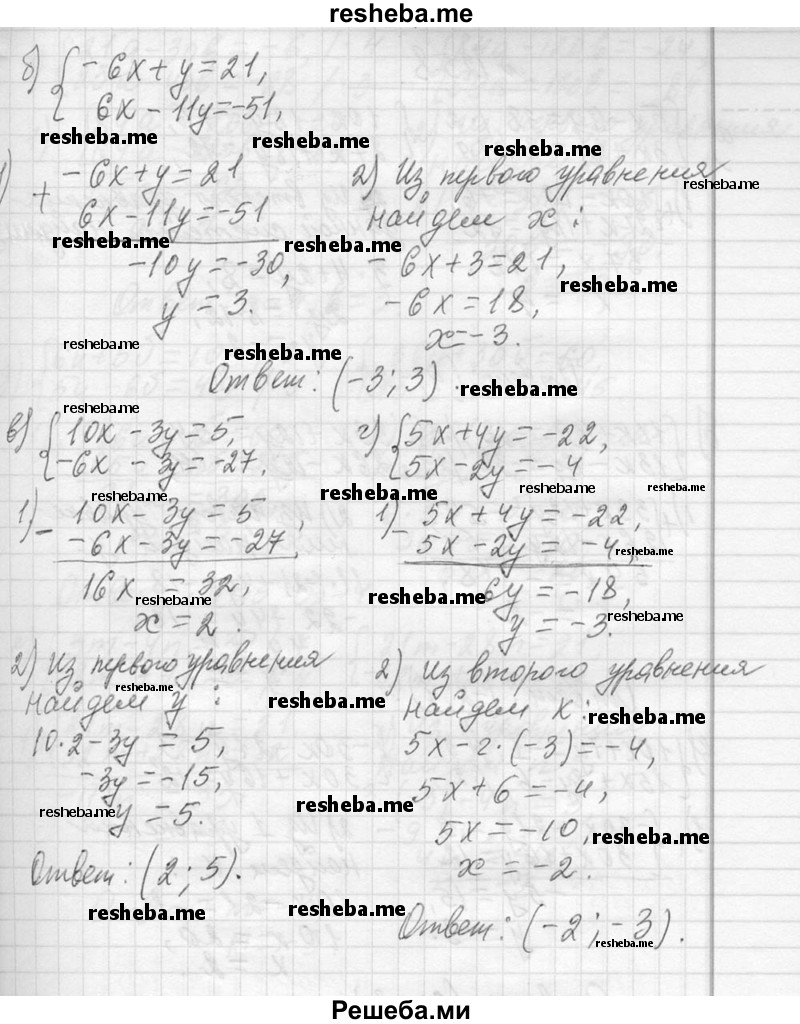 resheba.me
б) { -6x + y = 21,
6x - 11y = -51,
resheba.me resheba.me resheba.me
1) + -6x + y = 21
6x - 11y = -51
resheba.me resheba.me
-10y = -30,
y = 3.
resheba.me resheba.me
2) Из первого уравнения
resheba.me
найдем x:
-6x + 3 = 21,
resheba.me
-6x = 18,
x = -3.
Ответ: (-3; 3).
resheba.me
resheba.me
в) { 10x - 3y = 5,
-6x - 3y = -27.
resheba.me
1) - 10x - 3y = 5,
-6x - 3y = -27,
16x = 32,
resheba.me
x = 2.
2) Из первого уравнения
resheba.me
найдем y:
10·2 - 3y = 5,
-3y = -15,
resheba.me
y = 5.
Ответ: (2; 5).
resheba.me
г) { 5x + 4y = -22,
5x - 2y = -4
resheba.me resheba.me resheba.me
1) - 5x + 4y = -22,
5x - 2y = -4,
resheba.me
6y = -18,
resheba.me resheba.me
y = -3.
2) Из второго уравнения
resheba.me
найдем x:
resheba.me
5x - 2·(-3) = -4,
5x + 6 = -4,
resheba.me
5x = -10,
resheba.me
x = -2.
resheba.me
Ответ: (-2; -3).
resheba.me
Решеба.ми